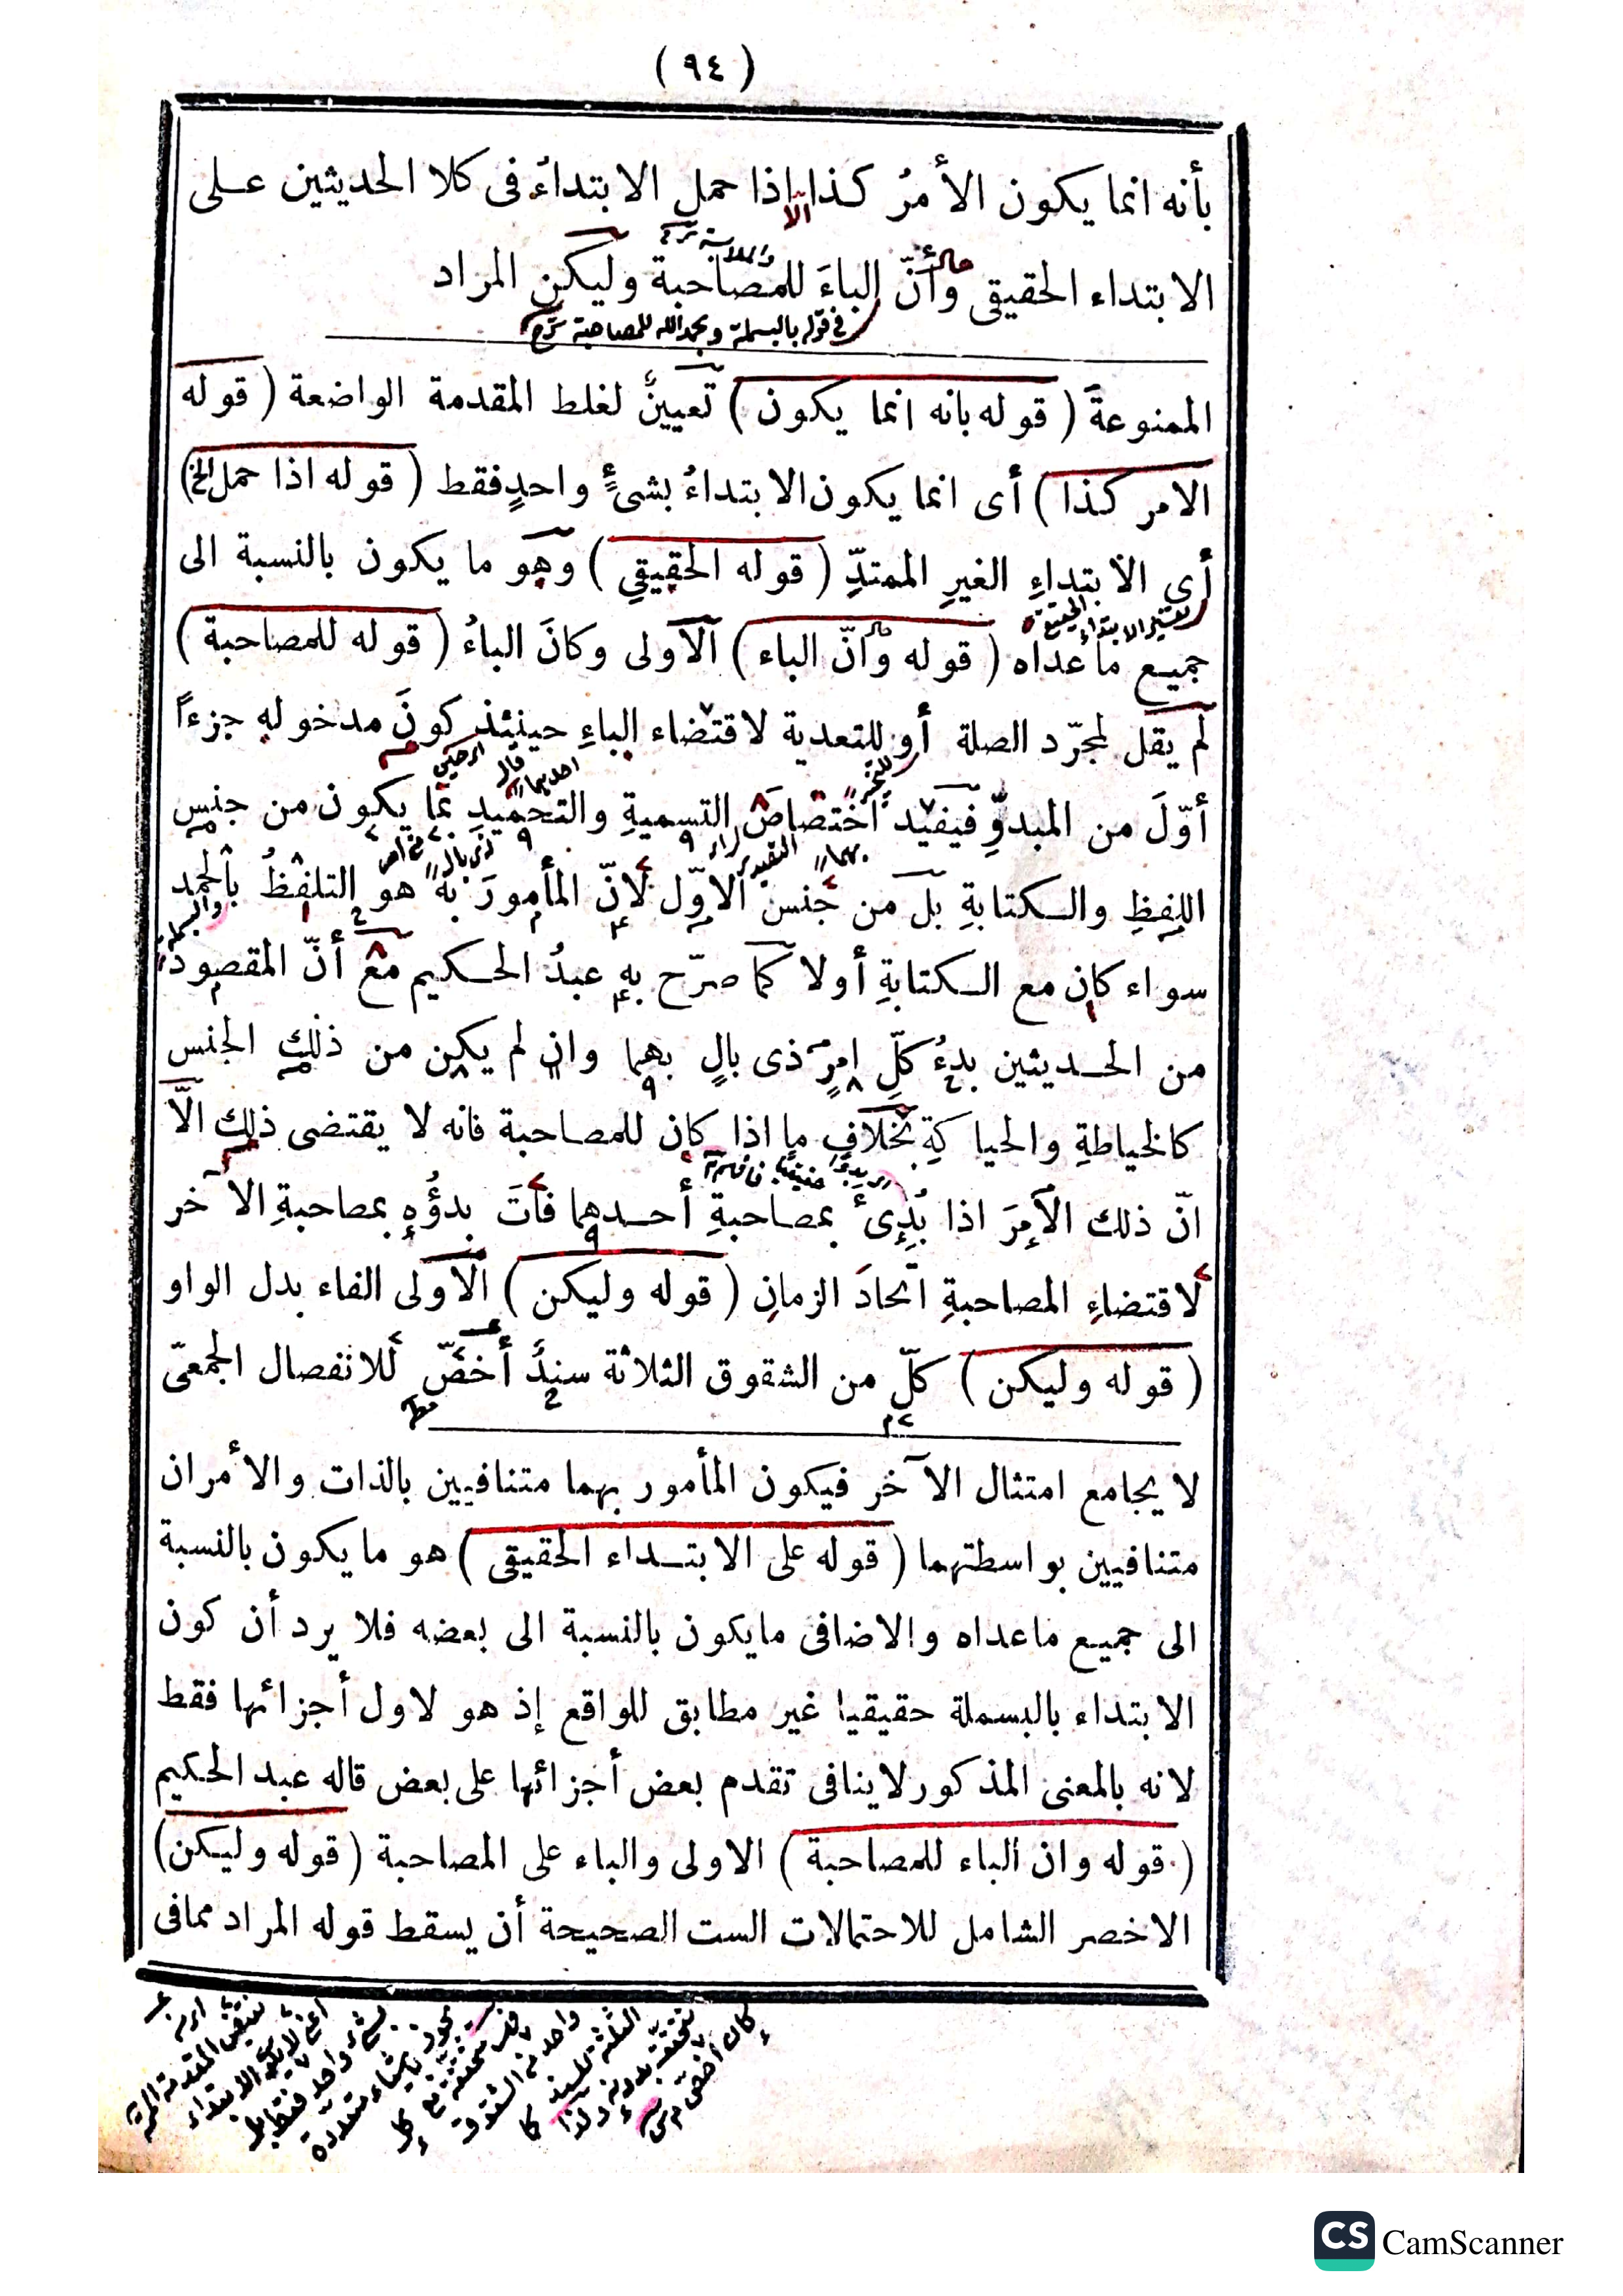 ( ٩٤ )
بأنه انما يكون الأمرُ كذا اذا حمل الابتداءُ فى كلا الحديثين على
الابتداء الحقيقى وأنّ الباءَ للمصاحبة وليكن المراد
فى قوله بالبسملة وبحمد الله للمصاحبة
الممنوعةَ ( قوله بانه انما يكون ) تعيينٌ لغلط المقدمة الواضعة ( قوله
الامر كذا ) أى انما يكون الابتداءُ بشىءٍ واحدٍ فقط ( قوله اذا حمل الخ )
أى الابتداءِ الغيرِ الممتدِّ ( قوله الحقيقى ) وهو ما يكون بالنسبة الى
جميع ماعداه ( قوله وأنّ الباء ) الاَولى وكانَ الباءُ ( قوله للمصاحبة )
لم يقل لمجرّد الصلة أو للتعدية لاقتضاء الباءِ حينئذ كونَ مدخوله جزءاً
أوّلَ من المبدوِّ فيفيد اختصاصَ التسميةِ والتحميدِ بما يكون من جنس
اللفظِ والكتابةِ بل من جنس الاوّل لانّ المأمورَ به هو التلفظُ بالحمد
سواء كان مع الكتابةِ أولا كما صرّح به عبدُ الحكيم مع أنّ المقصود
من الحديثين بدءُ كلِّ امرٍ ذى بالٍ بهما وان لم يكن من ذلك الجنس
كالخياطةِ والحياكةِ بخلافِ ما اذا كان للمصاحبة فانه لا يقتضى ذلك الاّ
انّ ذلك الاَمرَ اذا بُدِئ بمصاحبةِ أحدهما فاتَ بدؤُه بمصاحبةِ الآخر
لاقتضاءِ المصاحبةِ اتحادَ الزمانِ ( قوله وليكن ) الاَولى الفاء بدل الواو
( قوله وليكن ) كلّ من الشقوق الثلاثة سندٌ أخصّ للانفصال الجمعىّ
لا يجامع امتثال الآخر فيكون المأمور بهما متنافيين بالذات والأمران
متنافيين بواسطتهما ( قوله على الابتداء الحقيقى ) هو ما يكون بالنسبة
الى جميع ماعداه والاضافى مايكون بالنسبة الى بعضه فلا يرد أن كون
الابتداء بالبسملة حقيقيا غير مطابق للواقع إذ هو لاول أجزائها فقط
لانه بالمعنى المذكور لاينافى تقدم بعض أجزائها على بعض قاله عبد الحكيم
( قوله وان الباء للمصاحبة ) الاولى والباء على المصاحبة ( قوله وليكن )
الاخصر الشامل للاحتمالات الست الصحيحة أن يسقط قوله المراد ممافى
CS CamScanner